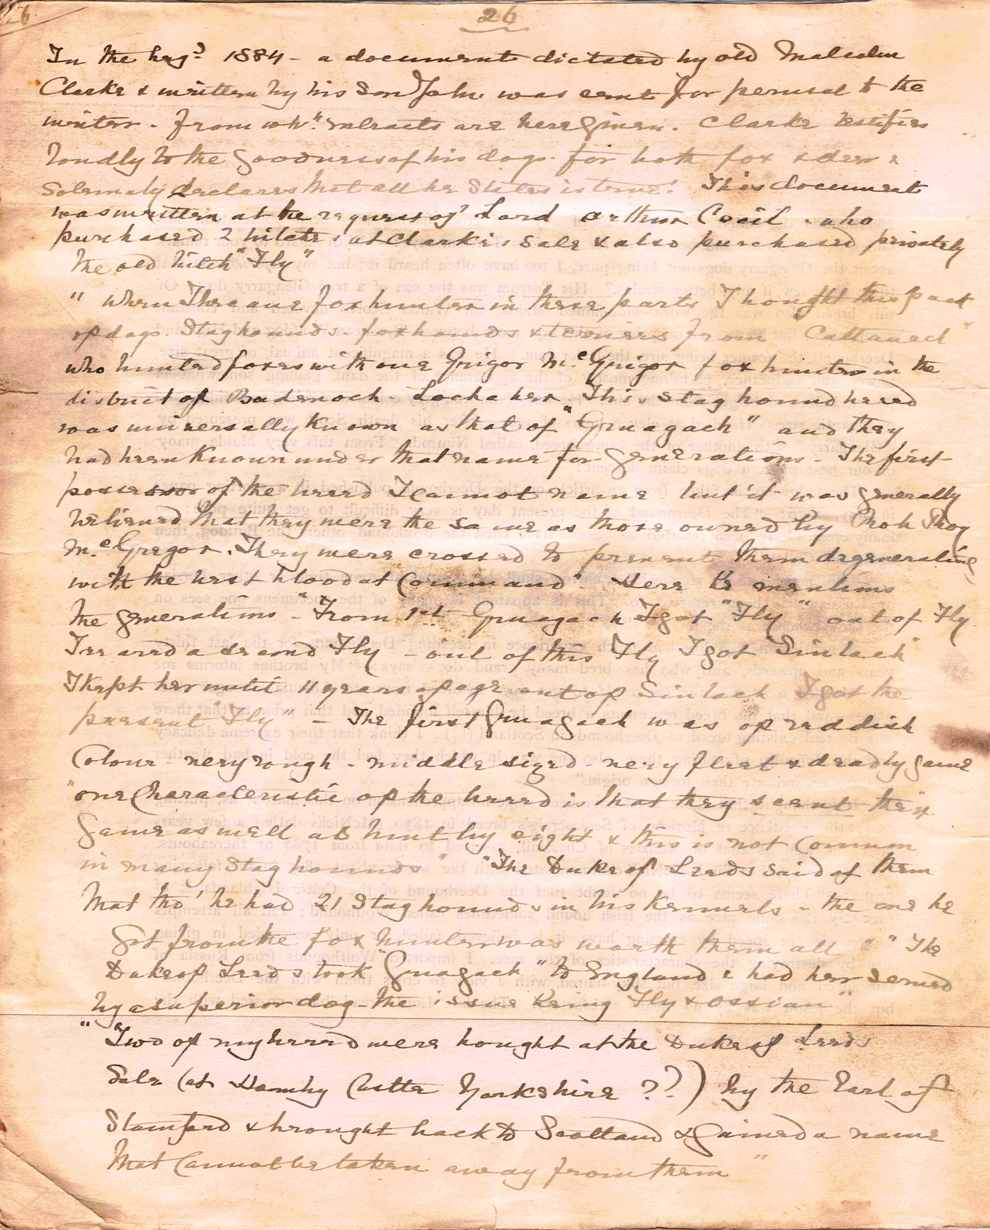 26
In the begg 1884 - a document dictated by old Malcolm
Clarke & written by his son John was sent for perusal to the
writer - from whh extracts are here given. Clarke testifies
loudly to the goodness of his dogs for both fox & deer &
solemnly declares that all he states is true! This document
was written at the request of Lord Arthur Cecil who
purchased 2 at Clarke's sale & also purchased privately
the old bitch "Fly"
" When I became foxhunter in these parts I bought this pack
of dogs. Staghounds - foxhounds & terriers from Cattanach "
who hunted foxes with one Grigor McGrigor foxhunter in the
district of Badenoch - Lochaber. This staghound breed
was universally known as that of "Gruagach" and they
had been known under that name for generations - The first
possessor of the breed I cannot name but it was generally
believed that they were the same as those owned by Rob Roy
McGregor. They were crossed to prevent them degenerating
with the best blood at command" Here he mentions
the generations - "From 1st Gruagach I got "Fly" out of Fly
I reared a second Fly - out of this Fly I got Sinlach "
I kept her until 11 years of age out of Sinlach I got the
present Fly" - The first Gruagach was of reddish
colour - very rough - middle sized - very fleet & deadly game
"one characteristic of the breed is that they scent their
game as well as hunt by sight & this is not common
in many staghounds" "The Duke of Leeds said of them
that tho' he had 21 Staghounds in his kennels - the one he
got from the fox hunter was worth them all " " The
Duke of Leeds took "Gruagach" to England & had her served
by a superior dog - the issue being Fly & Ossian "
"Two of my breed were bought at the Duke of Leeds
Sale (at Hornby Yorkshire ??) by the Earl of
Stamford & brought back to Scotland & gained a name
that cannot be taken away from them "